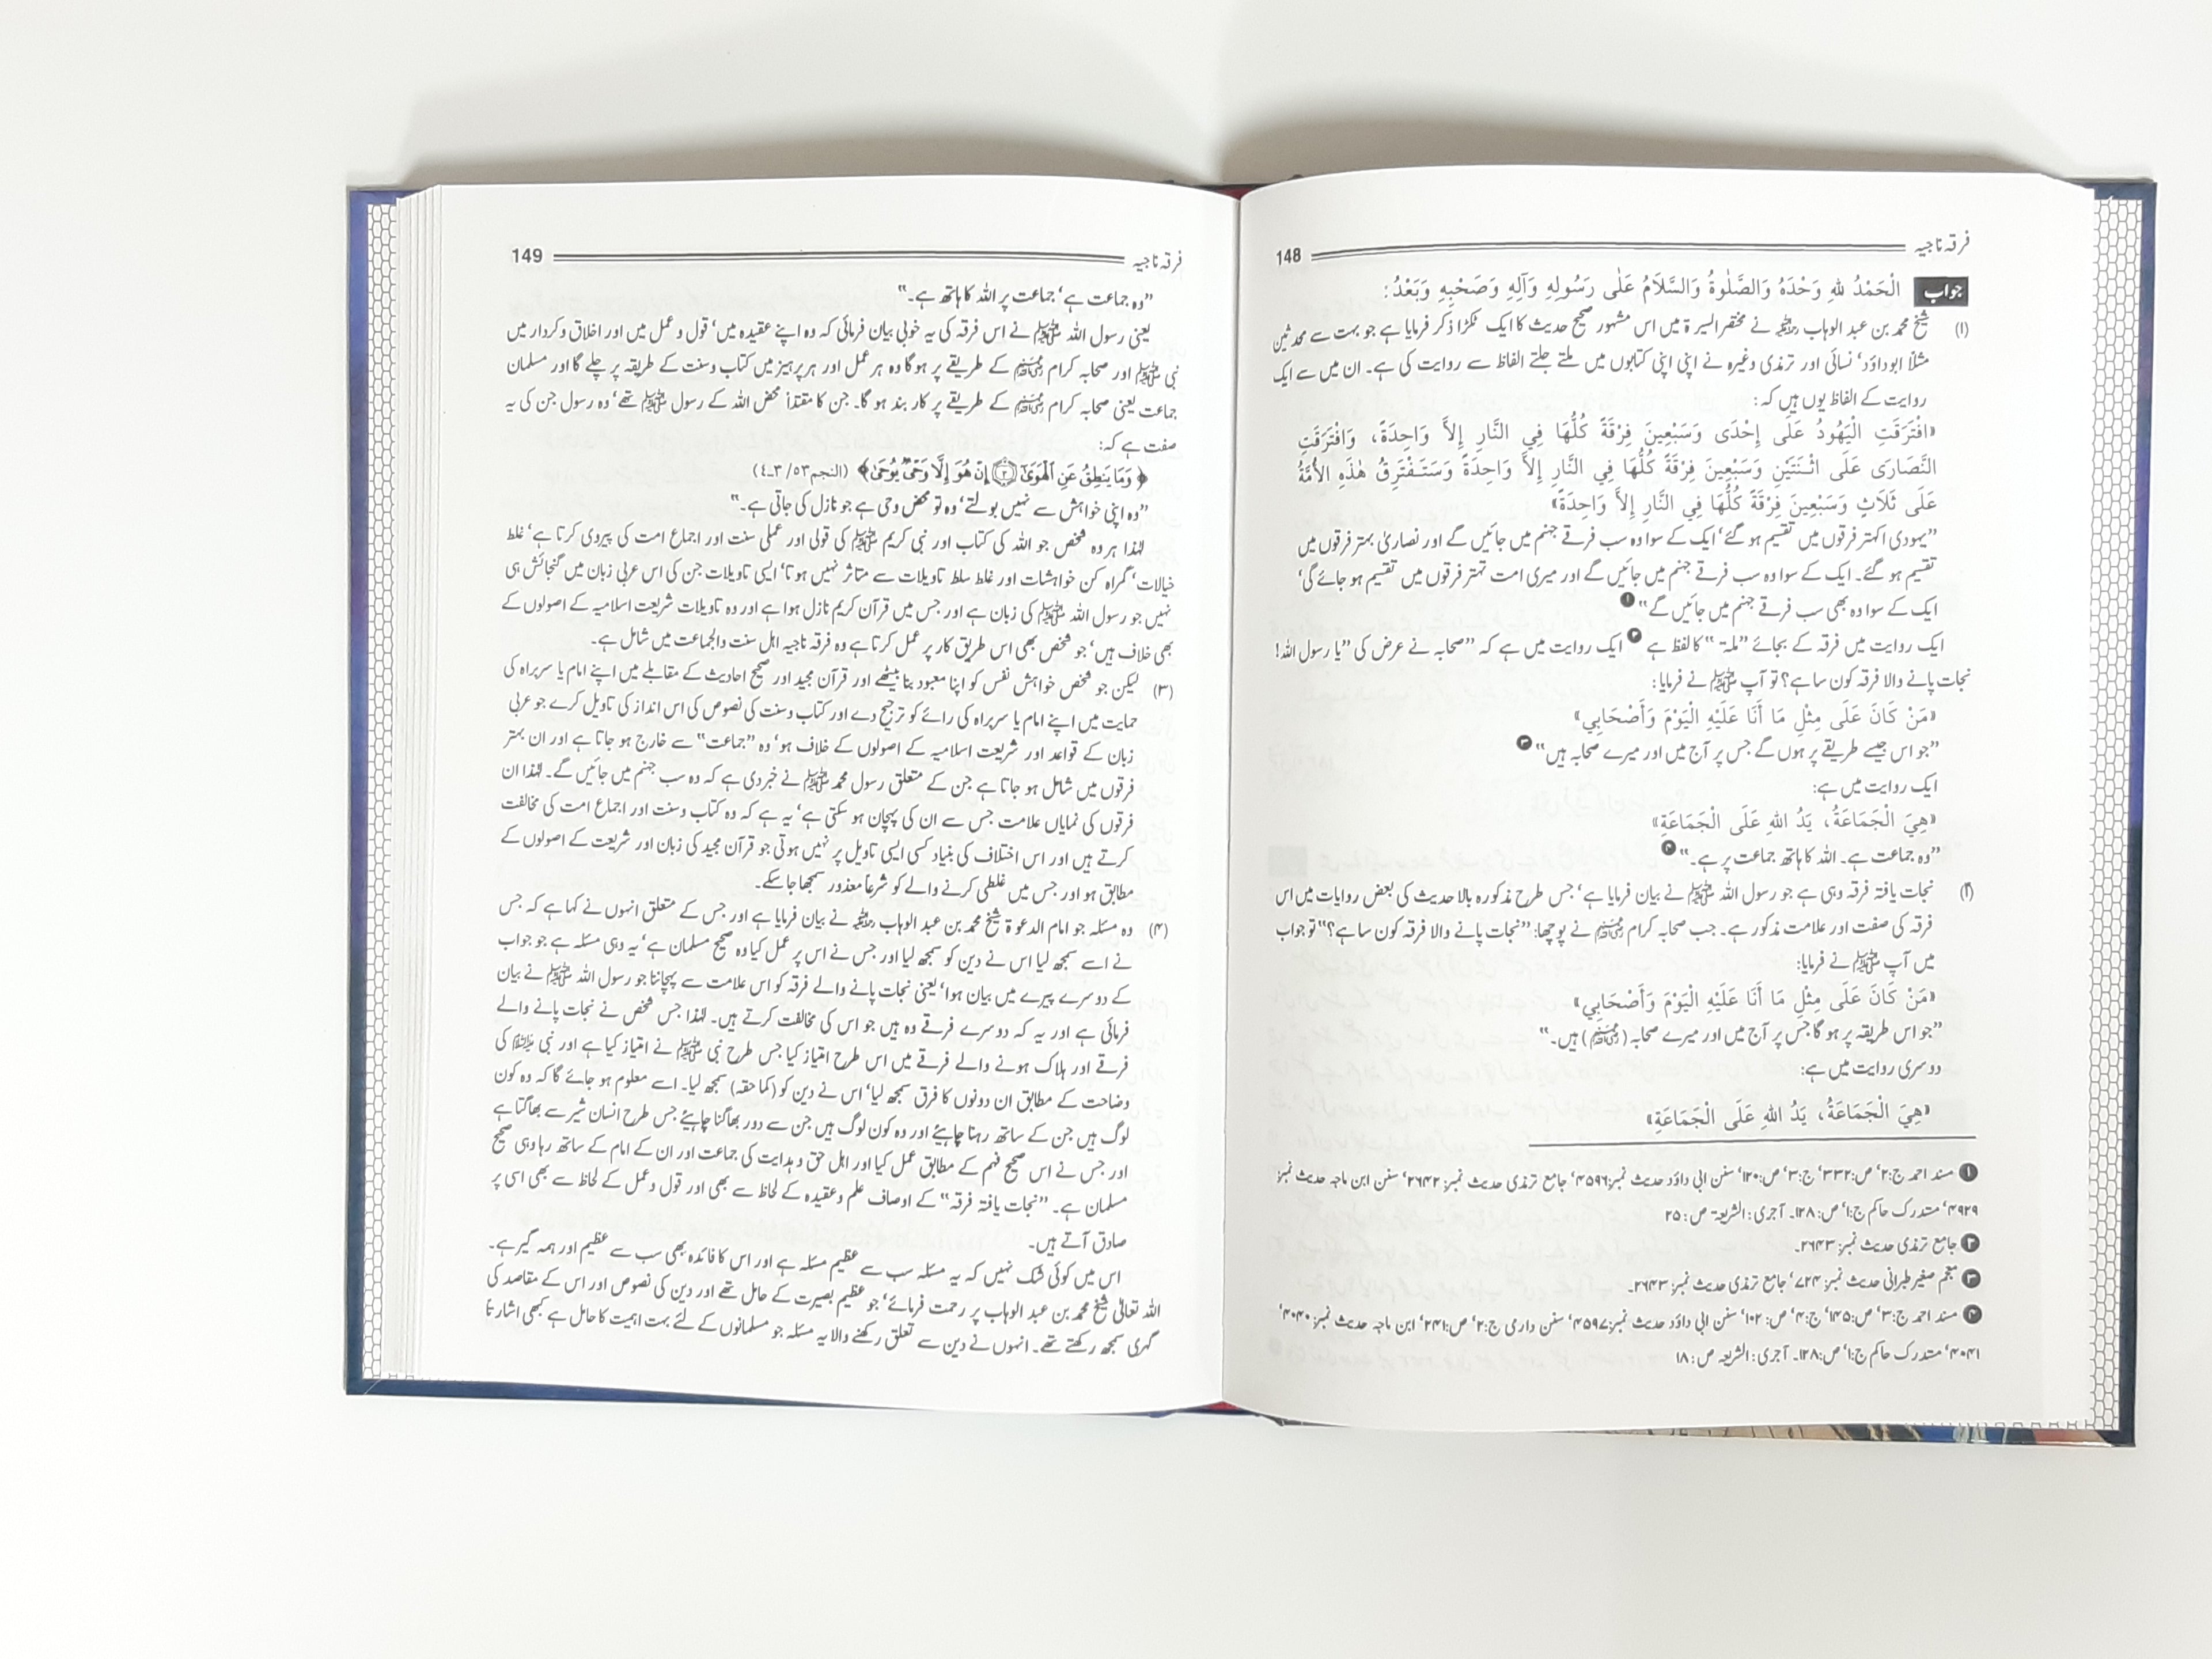 فرقہ ناجیہ 148
جواب الْحَمْدُ للهِ وَحْدَهُ وَالصَّلٰوةُ وَالسَّلاَمُ عَلٰى رَسُولِهِ وَآلِهِ وَصَحْبِهِ وَبَعْدُ:
(۱) شیخ محمد بن عبد الوہاب رحمہ اللہ نے مختصر السیرۃ میں اس مشہور صحیح حدیث کا ایک ٹکڑا ذکر فرمایا ہے جو بہت سے محدثین
مثلاً ابوداؤد‘ نسائی اور ترمذی وغیرہ نے اپنی اپنی کتابوں میں ملتے جلتے الفاظ سے روایت کی ہے۔ ان میں سے ایک
روایت کے الفاظ یوں ہیں کہ:
«افْتَرَقَتِ الْيَهُودُ عَلَى إِحْدَى وَسَبْعِينَ فِرْقَةً كُلُّهَا فِي النَّارِ إِلاَّ وَاحِدَةً، وَافْتَرَقَتِ
النَّصَارَى عَلَى اثْنَتَيْنِ وَسَبْعِينَ فِرْقَةً كُلُّهَا فِي النَّارِ إِلاَّ وَاحِدَةً وَسَتَفْتَرِقُ هٰذِهِ الأُمَّةُ
عَلَى ثَلاَثٍ وَسَبْعِينَ فِرْقَةً كُلُّهَا فِي النَّارِ إِلاَّ وَاحِدَةً»
”یہودی اکہتر فرقوں میں تقسیم ہو گئے‘ ایک کے سوا وہ سب فرقے جہنم میں جائیں گے اور نصاریٰ بہتر فرقوں میں
تقسیم ہو گئے۔ ایک کے سوا وہ سب فرقے جہنم میں جائیں گے اور میری امت تہتر فرقوں میں تقسیم ہو جائے گی‘
ایک کے سوا وہ بھی سب فرقے جہنم میں جائیں گے“ ❶
ایک روایت میں فرقہ کے بجائے ”ملۃ“ کا لفظ ہے ❷ ایک روایت میں ہے کہ ”صحابہ نے عرض کی ”یا رسول اللہ!
نجات پانے والا فرقہ کون سا ہے؟ تو آپ ﷺ نے فرمایا:
«مَنْ كَانَ عَلَى مِثْلِ مَا أَنَا عَلَيْهِ الْيَوْمَ وَأَصْحَابِي»
”جو اس جیسے طریقے پر ہوں گے جس پر آج میں اور میرے صحابہ ہیں“ ❸
ایک روایت میں ہے:
«هِيَ الْجَمَاعَةُ، يَدُ اللهِ عَلَى الْجَمَاعَةِ»
”وہ جماعت ہے۔ اللہ کا ہاتھ جماعت پر ہے۔“ ❹
(۲) نجات یافتہ فرقہ وہی ہے جو رسول اللہ ﷺ نے بیان فرمایا ہے‘ جس طرح مذکورہ بالا حدیث کی بعض روایات میں اس
فرقہ کی صفت اور علامت مذکور ہے۔ جب صحابہ کرام رضی اللہ عنہم نے پوچھا: ”نجات پانے والا فرقہ کون سا ہے؟“ تو جواب
میں آپ ﷺ نے فرمایا:
«مَنْ كَانَ عَلَى مِثْلِ مَا أَنَا عَلَيْهِ الْيَوْمَ وَأَصْحَابِي»
”جو اس طریقہ پر ہو گا جس پر آج میں اور میرے صحابہ (رضی اللہ عنہم) ہیں۔“
دوسری روایت میں ہے:
«هِيَ الْجَمَاعَةُ، يَدُ اللهِ عَلَى الْجَمَاعَةِ»
❶ مسند احمد ج:۲‘ ص:۳۳۲‘ ج:۳‘ ص:۱۲۰‘ سنن ابی داؤد حدیث نمبر:۴۵۹۶‘ جامع ترمذی حدیث نمبر: ۲۶۴۲‘ سنن ابن ماجہ حدیث نمبر:
۳۹۲۹‘ مستدرک حاکم ج:۱‘ ص:۱۲۸۔ آجری: الشریعۃ ص: ۲۵
❷ جامع ترمذی حدیث نمبر: ۲۶۴۳۔
❸ معجم صغیر طبرانی حدیث نمبر: ۷۲۴‘ جامع ترمذی حدیث نمبر: ۲۶۴۳۔
❹ مسند احمد ج:۳‘ ص:۱۴۵‘ ج:۴‘ ص: ۱۰۲‘ سنن ابی داؤد حدیث نمبر: ۴۵۹۷‘ سنن دارمی ج:۲‘ ص:۲۴۱‘ ابن ماجہ حدیث نمبر: ۴۰۴۰‘
۴۰۴۱‘ مستدرک حاکم ج:۱‘ ص:۱۲۸۔ آجری: الشریعہ ص: ۱۸
فرقہ ناجیہ 149
”وہ جماعت ہے‘ جماعت پر اللہ کا ہاتھ ہے۔“
یعنی رسول اللہ ﷺ نے اس فرقہ کی یہ خوبی بیان فرمائی کہ وہ اپنے عقیدہ میں‘ قول و عمل میں اور اخلاق و کردار میں
نبی ﷺ اور صحابہ کرام رضی اللہ عنہم کے طریقے پر ہو گا وہ ہر عمل اور ہر پرہیز میں کتاب و سنت کے طریقہ پر چلے گا اور مسلمان
جماعت یعنی صحابہ کرام رضی اللہ عنہم کے طریقے پر کاربند ہو گا۔ جن کا مقتدا محض اللہ کے رسول ﷺ تھے‘ وہ رسول جن کی یہ
صفت ہے کہ:
﴿ وَمَا يَنطِقُ عَنِ ٱلْهَوَىٰٓ ۝٣ إِنْ هُوَ إِلَّا وَحْىٌ يُوحَىٰ﴾ (النجم۵۳/ ۳۔۴)
”وہ اپنی خواہش سے نہیں بولتے‘ وہ تو محض وحی ہے جو نازل کی جاتی ہے۔“
لہٰذا ہر وہ شخص جو اللہ کی کتاب اور نبی کریم ﷺ کی قولی اور عملی سنت اور اجماع امت کی پیروی کرتا ہے‘ غلط
خیالات‘ گمراہ کن خواہشات اور غلط سلط تاویلات سے متاثر نہیں ہوتا‘ ایسی تاویلات جن کی اس عربی زبان میں گنجائش ہی
نہیں جو رسول اللہ ﷺ کی زبان ہے اور جس میں قرآن کریم نازل ہوا ہے اور وہ تاویلات شریعت اسلامیہ کے اصولوں کے
بھی خلاف ہیں‘ جو شخص بھی اس طریق کار پر عمل کرتا ہے وہ فرقہ ناجیہ اہل سنت والجماعت میں شامل ہے۔
(۳) لیکن جو شخص خواہش نفس کو اپنا معبود بنا بیٹھے اور قرآن مجید اور صحیح احادیث کے مقابلے میں اپنے امام یا سربراہ کی
حمایت میں اپنے امام یا سربراہ کی رائے کو ترجیح دے اور کتاب و سنت کی نصوص کی اس انداز کی تاویل کرے جو عربی
زبان کے قواعد اور شریعت اسلامیہ کے اصولوں کے خلاف ہو‘ وہ ”جماعت“ سے خارج ہو جاتا ہے اور ان بہتر
فرقوں میں شامل ہو جاتا ہے جن کے متعلق رسول محمد ﷺ نے خبر دی ہے کہ وہ سب جہنم میں جائیں گے۔ لہٰذا ان
فرقوں کی نمایاں علامت جس سے ان کی پہچان ہو سکتی ہے‘ یہ ہے کہ وہ کتاب و سنت اور اجماع امت کی مخالفت
کرتے ہیں اور اس اختلاف کی بنیاد کسی ایسی تاویل پر نہیں ہوتی جو قرآن مجید کی زبان اور شریعت کے اصولوں کے
مطابق ہو اور جس میں غلطی کرنے والے کو شرعاً معذور سمجھا جا سکے۔
(۴) وہ مسئلہ جو امام الدعوۃ شیخ محمد بن عبد الوہاب رحمہ اللہ نے بیان فرمایا ہے اور جس کے متعلق انہوں نے کہا ہے کہ جس
نے اسے سمجھ لیا اس نے دین کو سمجھ لیا اور جس نے اس پر عمل کیا وہ صحیح مسلمان ہے‘ یہ وہی مسئلہ ہے جو جواب
کے دوسرے پیرے میں بیان ہوا‘ یعنی نجات پانے والے فرقہ کو اس علامت سے پہچاننا جو رسول اللہ ﷺ نے بیان
فرمائی ہے اور یہ کہ دوسرے فرقے وہ ہیں جو اس کی مخالفت کرتے ہیں۔ لہٰذا جس شخص نے نجات پانے والے
فرقے اور ہلاک ہونے والے فرقے میں اس طرح امتیاز کیا جس طرح نبی ﷺ نے امتیاز کیا ہے اور نبی علیہ السلام کی
وضاحت کے مطابق ان دونوں کا فرق سمجھ لیا‘ اس نے دین کو (کما حقہ) سمجھ لیا۔ اسے معلوم ہو جائے گا کہ وہ کون
لوگ ہیں جن کے ساتھ رہنا چاہئے اور وہ کون لوگ ہیں جن سے دور بھاگنا چاہئے جس طرح انسان شیر سے بھاگتا ہے
اور جس نے اس صحیح فہم کے مطابق عمل کیا اور اہل حق و ہدایت کی جماعت اور ان کے امام کے ساتھ رہا وہی صحیح
مسلمان ہے۔ ”نجات یافتہ فرقہ“ کے اوصاف علم و عقیدہ کے لحاظ سے بھی اور قول و عمل کے لحاظ سے بھی اسی پر
صادق آتے ہیں۔
اس میں کوئی شک نہیں کہ یہ مسئلہ سب سے عظیم مسئلہ ہے اور اس کا فائدہ بھی سب سے عظیم اور ہمہ گیر ہے۔
اللہ تعالیٰ شیخ محمد بن عبد الوہاب پر رحمت فرمائے‘ جو عظیم بصیرت کے حامل تھے اور دین کی نصوص اور اس کے مقاصد کی
گہری سمجھ رکھتے تھے۔ انہوں نے دین سے تعلق رکھنے والا یہ مسئلہ جو مسلمانوں کے لئے بہت اہمیت کا حامل ہے کبھی اشارتاً